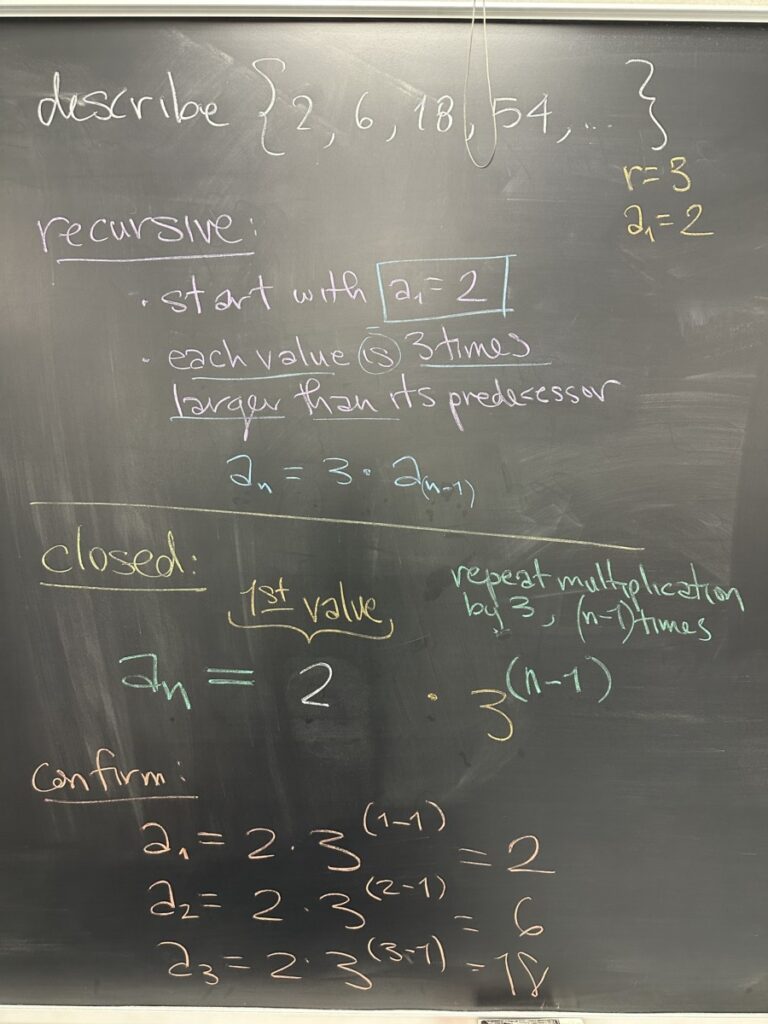 describe {2, 6, 18, 54, ... }
r=3
a₁=2
recursive:
· start with a₁=2
· each value is 3 times
larger than its predecessor
aₙ = 3 · a₍ₙ₋₁₎
closed:
1st value
repeat multiplication
by 3, (n-1) times
aₙ = 2 · 3⁽ⁿ⁻¹⁾
confirm:
a₁ = 2 · 3⁽¹⁻¹⁾ = 2
a₂ = 2 · 3⁽²⁻¹⁾ = 6
a₃ = 2 · 3⁽³⁻¹⁾ = 18